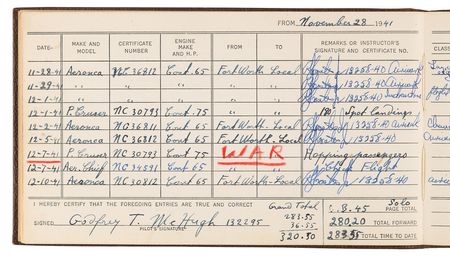 FROM November 28 1941
DATE- MAKE AND MODEL CERTIFICATE NUMBER ENGINE MAKE AND H.P. FROM TO REMARKS OR INSTRUCTOR'S SIGNATURE AND CERTIFICATE NO. CLASS
11-28-41 Aeronca NC 36812 Cont. 65 Fort Worth Local 13258-40
11-29-41 " " " " "
12-1-41 " " " " "
12-1-41 P. Cruser NC 30793 Cont. 75 " " 180° Spot Landings
12-2-41 Aeronca Cont. 65 Fort Worth - Local 13258-40
12-5-41 Aeronca NC 36812 Cont 65 Fort Worth - Local 13258-40
12-7-41 P. Cruser NC 30793 Cont 75 WAR Hopping passengers
12-7-41 Aer. Chief NC 34591 Cont 65 Check Flight
12-10-41 Aeronca NC 36812 Cont 65 Fort Worth - Local 13258-40
I HEREBY CERTIFY THAT THE FOREGOING ENTRIES ARE TRUE AND CORRECT
Grand Total
283.55
36.55
320.50
SIGNED Godfrey T. McHugh 132295
PILOT'S SIGNATURE
8.45 Solo
PAGE TOTAL
280.20 TOTAL FORWARD
TOTAL TIME TO DATE